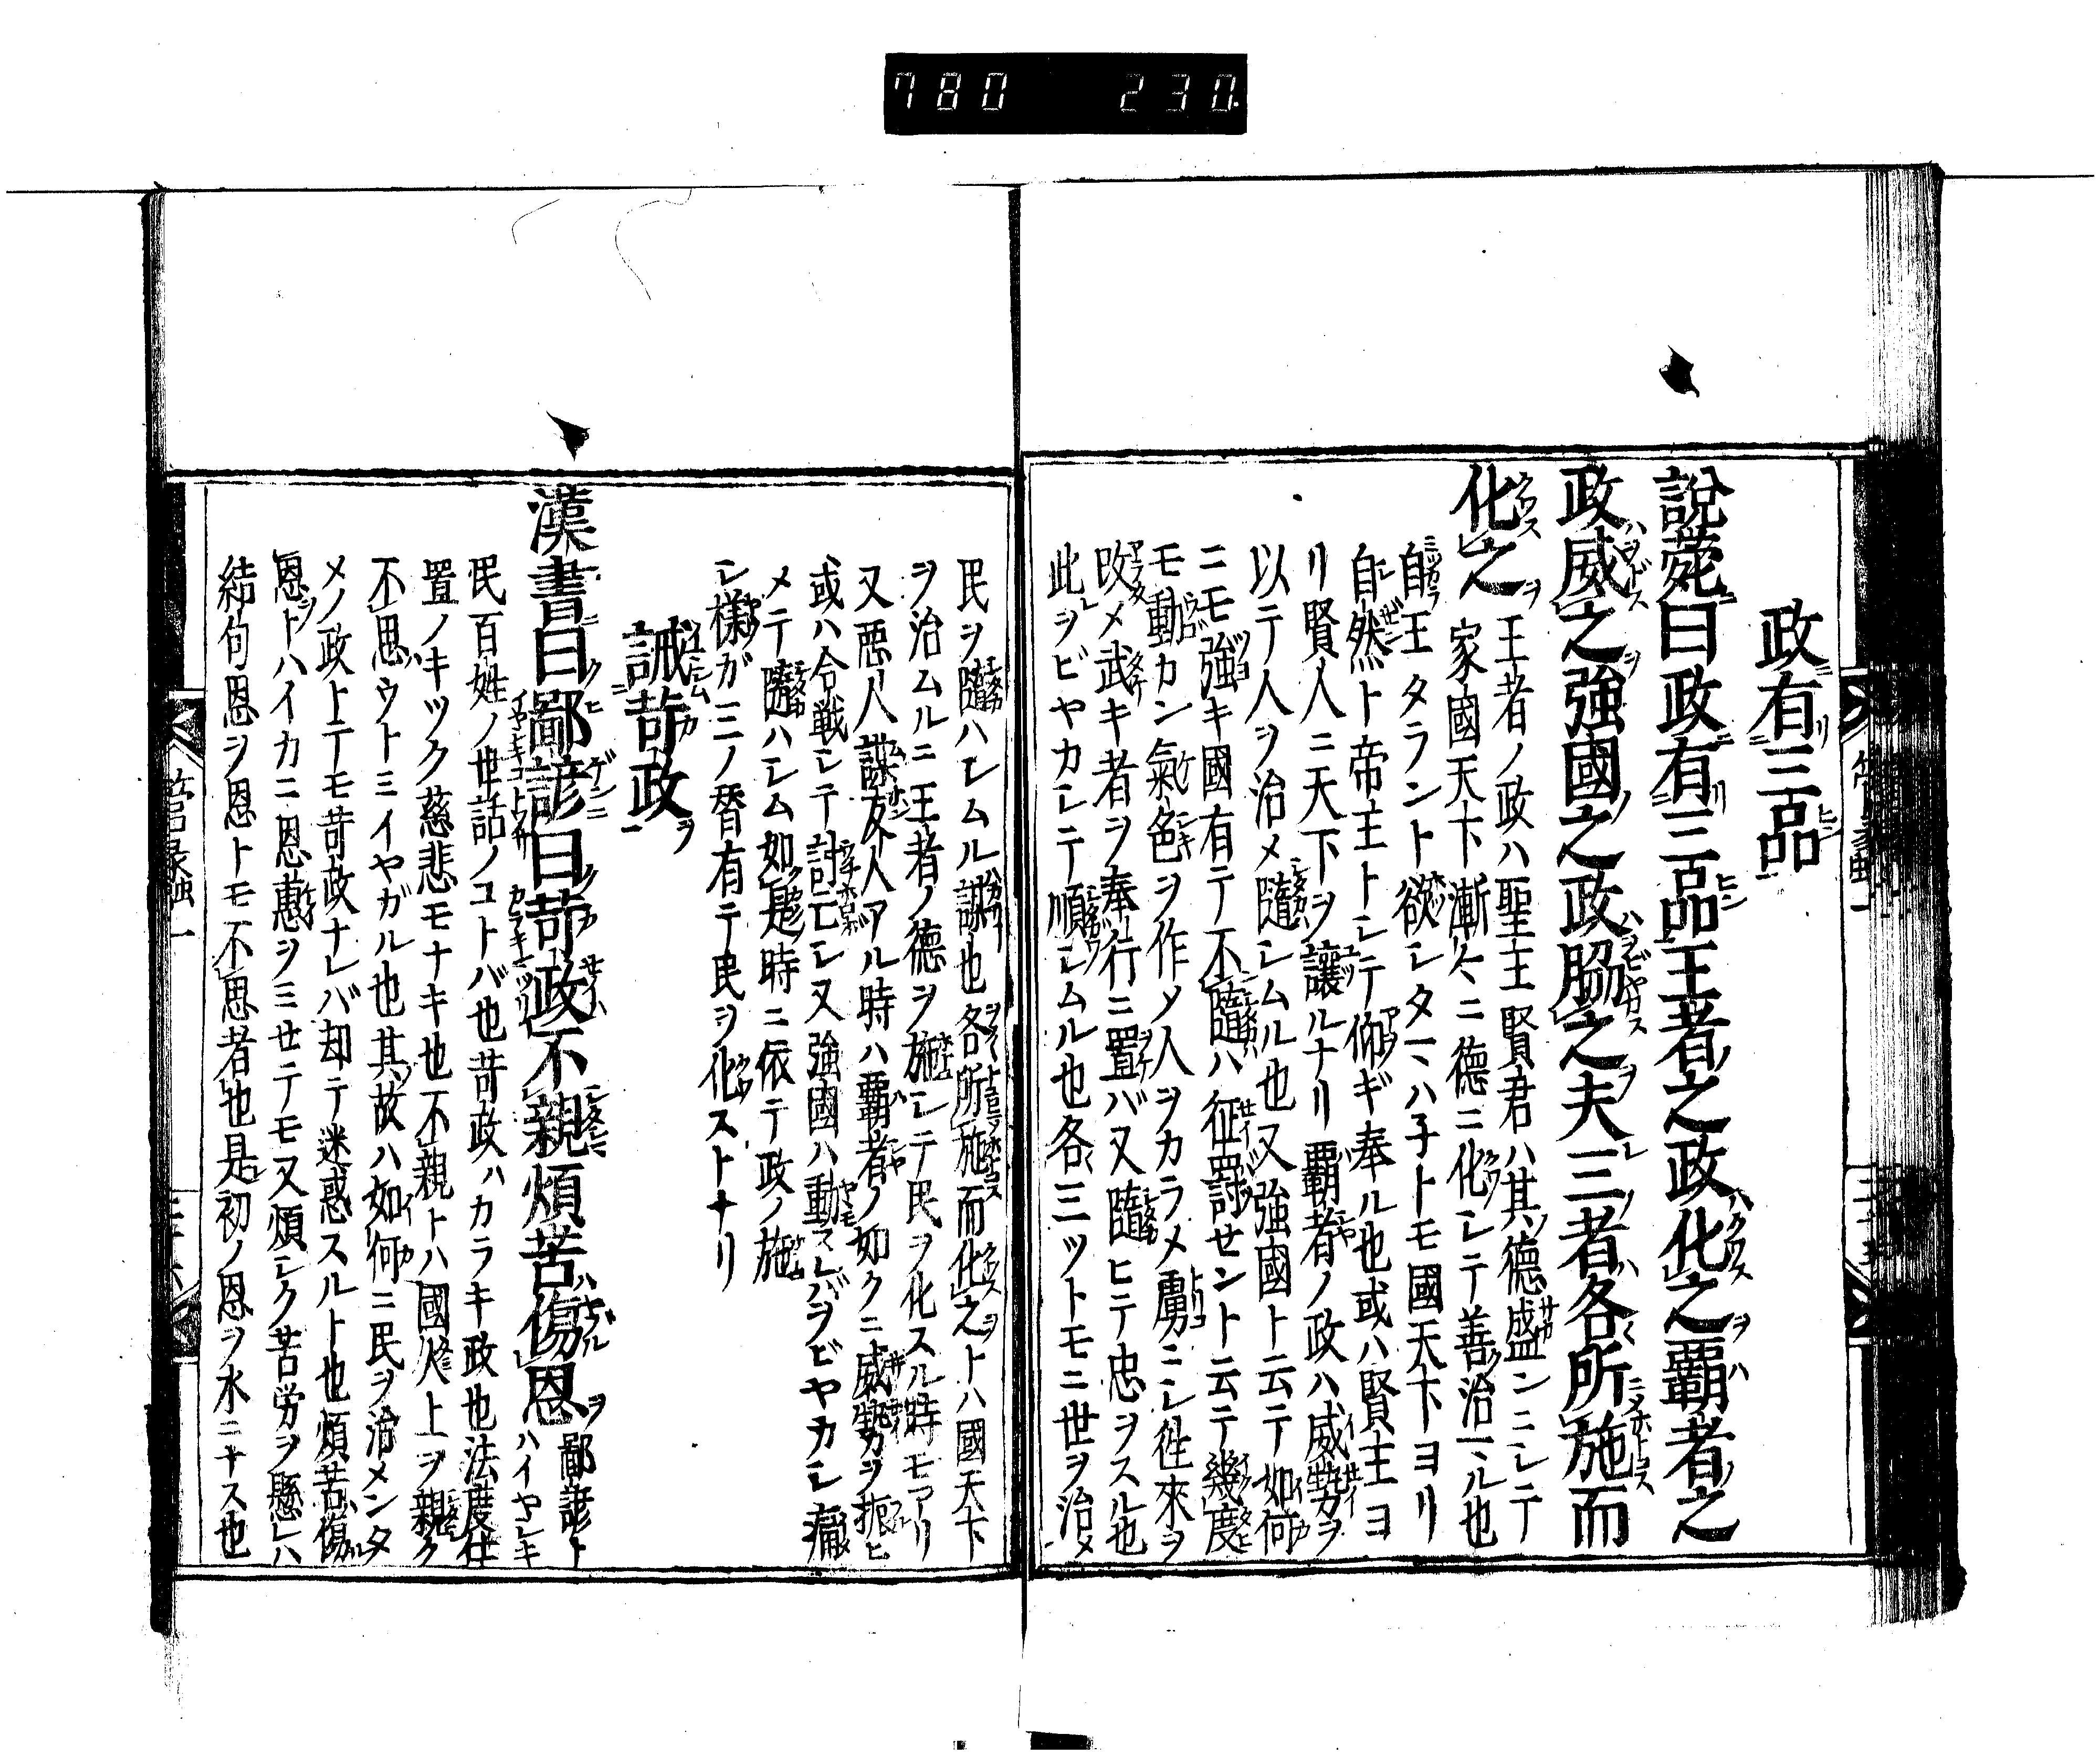 780 230
政有三品
説苑曰政有三品王者之政化之覇者之
政威之強國之政脇之夫三者各所施而
化之
王者ノ政ハ聖主賢君ハ其ノ德盛ンニシテ
家國天下漸々ニ德ニ化シテ善ク治マル也
自ラ王タラント欲シタマハ子トモ國天下ヨリ
自然ト帝王トシテ仰ギ奉ル也或ハ賢主ヨ
リ賢人ニ天下ヲ讓ルナリ覇者ノ政ハ威勢ヲ
以テ人ヲ治メ隨シムル也又強國ト云テ如何
ニモ強キ國有テ不隨ハ征罸セント云テ幾度
モ動カン氣色ヲ作メ人ヲカラメ虜ニシ徃來ヲ
改メ武キ者ヲ奉行ニ置バ又隨ヒテ忠ヲスル也
此ヲビヤカシテ順シムル也各三ツトモニ世ヲ治メ
民ヲ隨ハシムル謀也各所施而化之トハ國天下
ヲ治ムルニ王者ノ德ヲ施シテ民ヲ化スル時モアリ
又悪人謀反人アル時ハ覇者ノ如クニ威勢ヲ振ヒ
或ハ合戦シテ討亡シ又強國ハ動スレバヲビヤカシ痛
メテ隨ハシム如是時ニ依テ政ノ施
シ様ガ三ノ替有テ民ヲ化ストナリ
誡苛政
漢書曰鄙諺曰苛政不親煩苦傷恩
鄙諺ト
ハイヤシキ
民百姓ノ世話ノコトバ也苛政ハカラキ政也法度仕
置ノキツク慈悲モナキ也不親トハ國人上ヲ親ク
不思ウトミイヤガル也其故ハ如何ニ民ヲ治メンタ
メノ政トテモ苛政ナレバ却テ迷惑スルト也煩苦傷
恩トハイカニ恩惠ヲミセテモ又煩シク苦労ヲ懸レハ
結句恩ヲ恩トモ不思者也是初ノ恩ヲ水ニナス也